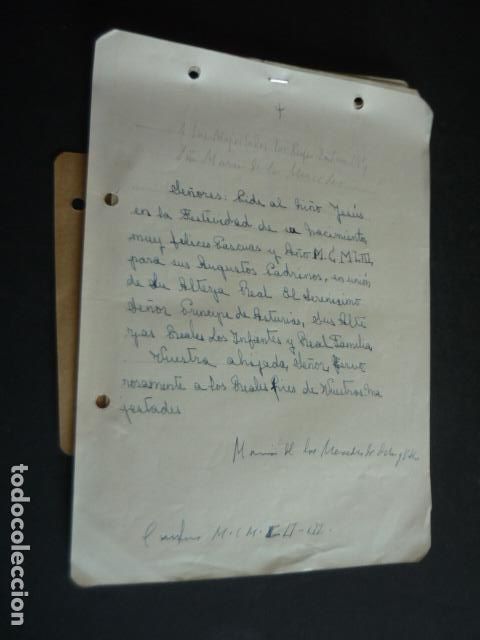 †
A Sus Majestades los Reyes Don Juan
Dña María de las Mercedes
Señores: Pide al Niño Jesús
en la Festividad de su Nacimiento,
muy felices Pascuas y Año M.C.M.LIII,
para sus Augustos Padrinos, en unión
de Su Alteza Real El Serenisimo
Señor Principe de Asturias, Sus Alte
zas Reales Los Infantes y Real Familia,
Vuestra ahijada, Señor, Fervo
rosamente a los Reales Pies de Vuestras Ma
jestades
María de las Mercedes de
M.C.M.
todocoleccion